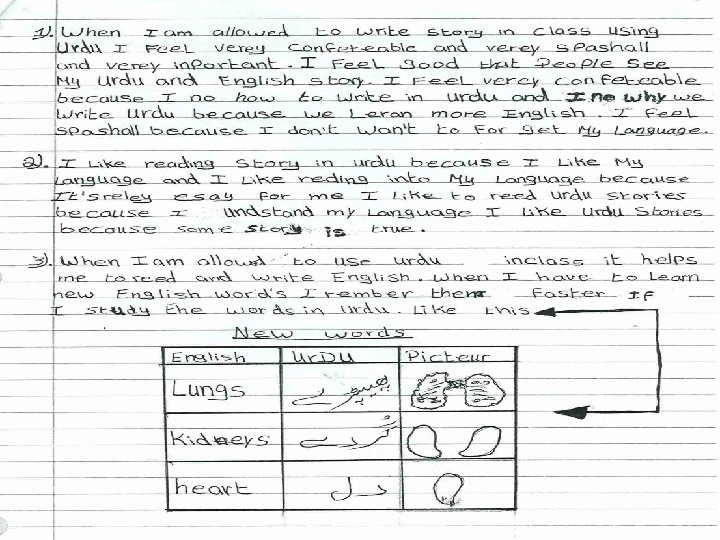 1). When I am allowed to write story in class using
Urdu I Feel verey Confeteable and verey spashall
and verey inportant. I Feel good that People see
My Urdu and English story. I Feel verey confeteable
because I no how to write in urdu and I no why we
write Urdu because we Leran more English. I Feel
spashall because I don't wan't to For get My Language.
2). I Like reading story in urdu because I Like My
Language and I Like reding into My Language because
It's reley esay For me I Like to reed urdu stories
because I undstand my Language I Like Urdu Stories
because some story is true.
3). When I am allowd to use urdu inclass it helps
me to reed and write English. when I have to learn
new English word's I rember them Faster IF
I study the words in Urdu. Like this
New words
English UrDU Picteur
Lungs پھیپڑے
Kidneys گُردے
heart دل